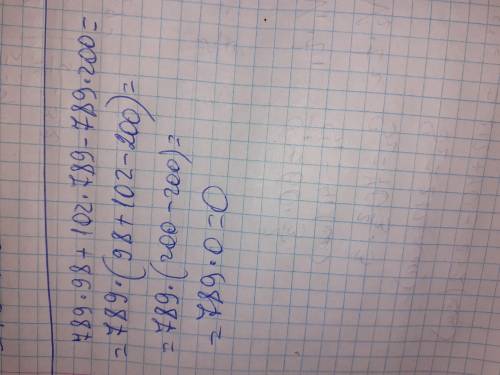 789·98+102·789-789·200=
=789·(98+102-200)=
=789·(200-200)=
=789·0=0